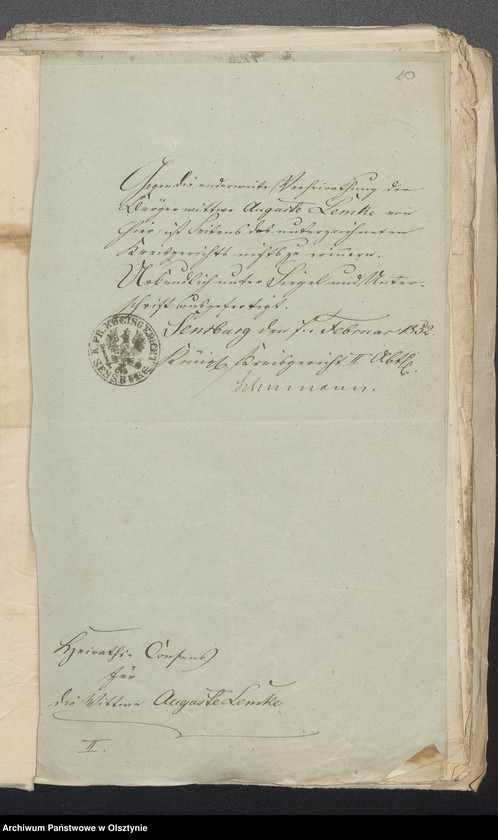 40
Gegen die anderweite Verheirathung der
Bürgerwittwe Auguste Lemke von
hier, ist Seitens des unterzeichneten
Kreisgerichts nichts zu erinnern.
Urkundlich unter Siegel und Unter-
schrift ausgefertigt.
Sensburg den 7. Februar 1852.
Königl. Kreisgericht II Abth.
Schumann.
K. PR. KREISGERICHT
SENSBURG
Heiraths-Consens
für
die Wittwe Auguste Lemke
II.
Archiwum Państwowe w Olsztynie